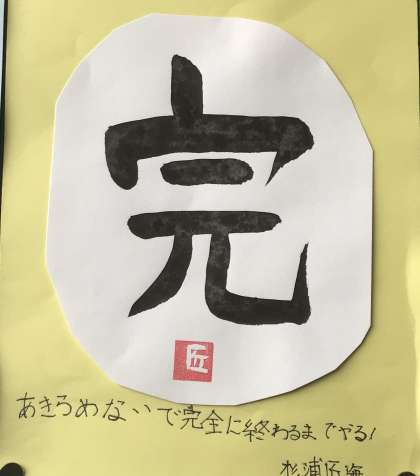 完
匠
あきらめないで完全に終わるまでやる！
杉浦匠海